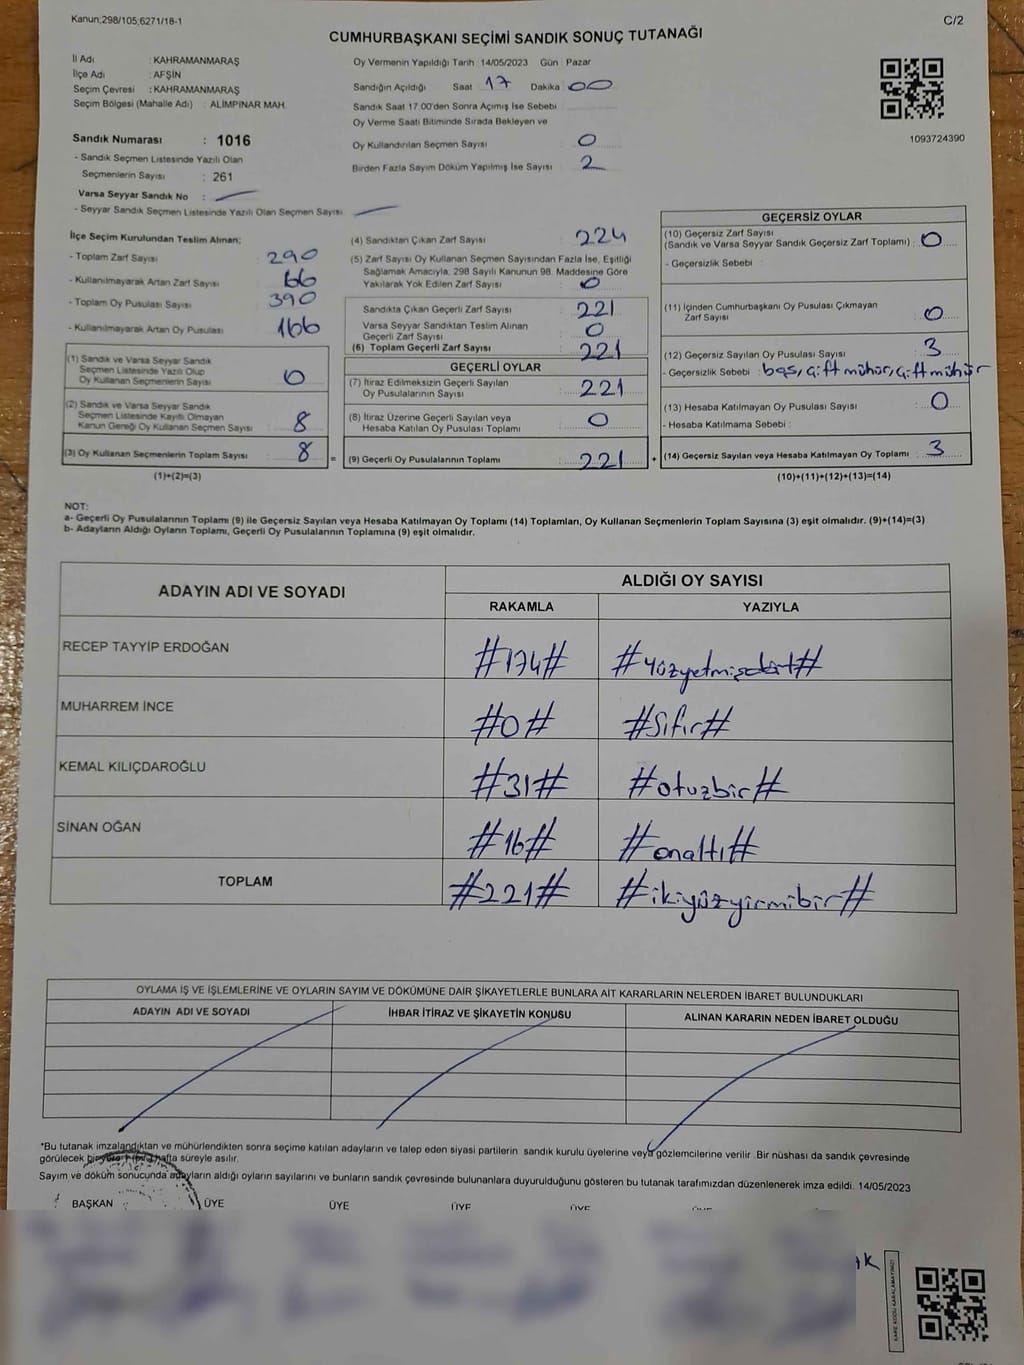 Kanun;298/105;6271/18-1
C/2
CUMHURBAŞKANI SEÇİMİ SANDIK SONUÇ TUTANAĞI
İl Adı : KAHRAMANMARAŞ
İlçe Adı : AFŞİN
Seçim Çevresi : KAHRAMANMARAŞ
Seçim Bölgesi (Mahalle Adı) : ALİMPINAR MAH.
Sandık Numarası : 1016
- Sandık Seçmen Listesinde Yazılı Olan
Seçmenlerin Sayısı : 261
Varsa Seyyar Sandık No :
- Seyyar Sandık Seçmen Listesinde Yazılı Olan Seçmen Sayısı:
Oy Vermenin Yapıldığı Tarih : 14/05/2023 Gün : Pazar
Sandığın Açıldığı Saat 17 Dakika 00
Sandık Saat 17:00'den Sonra Açımış İse Sebebi
Oy Verme Saati Bitiminde Sırada Bekleyen ve
Oy Kullandırılan Seçmen Sayısı 0
Birden Fazla Sayım Döküm Yapılmış İse Sayısı 2
1093724390
İlçe Seçim Kurulundan Teslim Alınan;
- Toplam Zarf Sayısı : 290
- Kullanılmayarak Artan Zarf Sayısı : 66
- Toplam Oy Pusulası Sayısı : 390
- Kullanılmayarak Artan Oy Pusulası : 166
(1) Sandık ve Varsa Seyyar Sandık
Seçmen Listesinde Yazılı Olup
Oy Kullanan Seçmenlerin Sayısı : 0
(2) Sandık ve Varsa Seyyar Sandık
Seçmen Listesinde Kayıtlı Olmayan
Kanun Gereği Oy Kullanan Seçmen Sayısı : 8
(3) Oy Kullanan Seçmenlerin Toplam Sayısı : 8
(1)+(2)=(3)
=
(4) Sandıktan Çıkan Zarf Sayısı : 224
(5) Zarf Sayısı Oy Kullanan Seçmen Sayısından Fazla İse, Eşitliği
Sağlamak Amacıyla, 298 Sayılı Kanunun 98. Maddesine Göre
Yakılarak Yok Edilen Zarf Sayısı : 0
Sandıkta Çıkan Geçerli Zarf Sayısı : 221
Varsa Seyyar Sandıktan Teslim Alınan
Geçerli Zarf Sayısı : 0
(6) Toplam Geçerli Zarf Sayısı : 221
GEÇERLİ OYLAR
(7) İtiraz Edilmeksizin Geçerli Sayılan
Oy Pusulalarının Sayısı : 221
(8) İtiraz Üzerine Geçerli Sayılan veya
Hesaba Katılan Oy Pusulası Toplamı : 0
(9) Geçerli Oy Pusulalarının Toplamı : 221
+
GEÇERSİZ OYLAR
(10) Geçersiz Zarf Sayısı
(Sandık ve Varsa Seyyar Sandık Geçersiz Zarf Toplamı) : 0
- Geçersizlik Sebebi :
(11) İçinden Cumhurbaşkanı Oy Pusulası Çıkmayan
Zarf Sayısı : 0
(12) Geçersiz Sayılan Oy Pusulası Sayısı : 3
- Geçersizlik Sebebi : boş, çift mühür, çift mühür
(13) Hesaba Katılmayan Oy Pusulası Sayısı : 0
- Hesaba Katılmama Sebebi :
(14) Geçersiz Sayılan veya Hesaba Katılmayan Oy Toplamı : 3
(10)+(11)+(12)+(13)=(14)
NOT:
a- Geçerli Oy Pusulalarının Toplamı (9) ile Geçersiz Sayılan veya Hesaba Katılmayan Oy Toplamı (14) Toplamları, Oy Kullanan Seçmenlerin Toplam Sayısına (3) eşit olmalıdır. (9)+(14)=(3)
b- Adayların Aldığı Oyların Toplamı, Geçerli Oy Pusulalarının Toplamına (9) eşit olmalıdır.
ADAYIN ADI VE SOYADI
ALDIĞI OY SAYISI
RAKAMLA YAZIYLA
RECEP TAYYİP ERDOĞAN #174# #yüzyetmişdört#
MUHARREM İNCE #0# #Sıfır#
KEMAL KILIÇDAROĞLU #31# #otuzbir#
SİNAN OĞAN #16# #onaltı#
TOPLAM #221# #ikiyüzyirmibir#
OYLAMA İŞ VE İŞLEMLERİNE VE OYLARIN SAYIM VE DÖKÜMÜNE DAİR ŞİKAYETLERLE BUNLARA AİT KARARLARIN NELERDEN İBARET BULUNDUKLARI
ADAYIN ADI VE SOYADI İHBAR İTİRAZ VE ŞİKAYETİN KONUSU ALINAN KARARIN NEDEN İBARET OLDUĞU
*Bu tutanak imzalandıktan ve mühürlendikten sonra seçime katılan adayların ve talep eden siyasi partilerin sandık kurulu üyelerine veya gözlemcilerine verilir. Bir nüshası da sandık çevresinde
görülecek bir yere 1 (bir) hafta süreyle asılır.
Sayım ve döküm sonucunda adayların aldığı oyların sayılarını ve bunların sandık çevresinde bulunanlara duyurulduğunu gösteren bu tutanak tarafımızdan düzenlenerek imza edildi. 14/05/2023
BAŞKAN ÜYE ÜYE ÜYE ÜYE ÜYE
KARE KODU KARALAMAYINIZ!